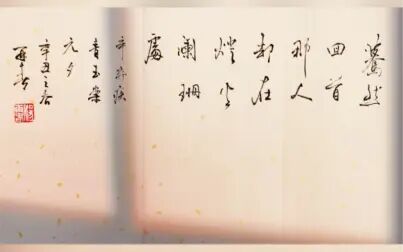 驀然
回首
那人
却在
燈火
闌珊
處
辛弃疾
青玉案
元夕
辛丑之春